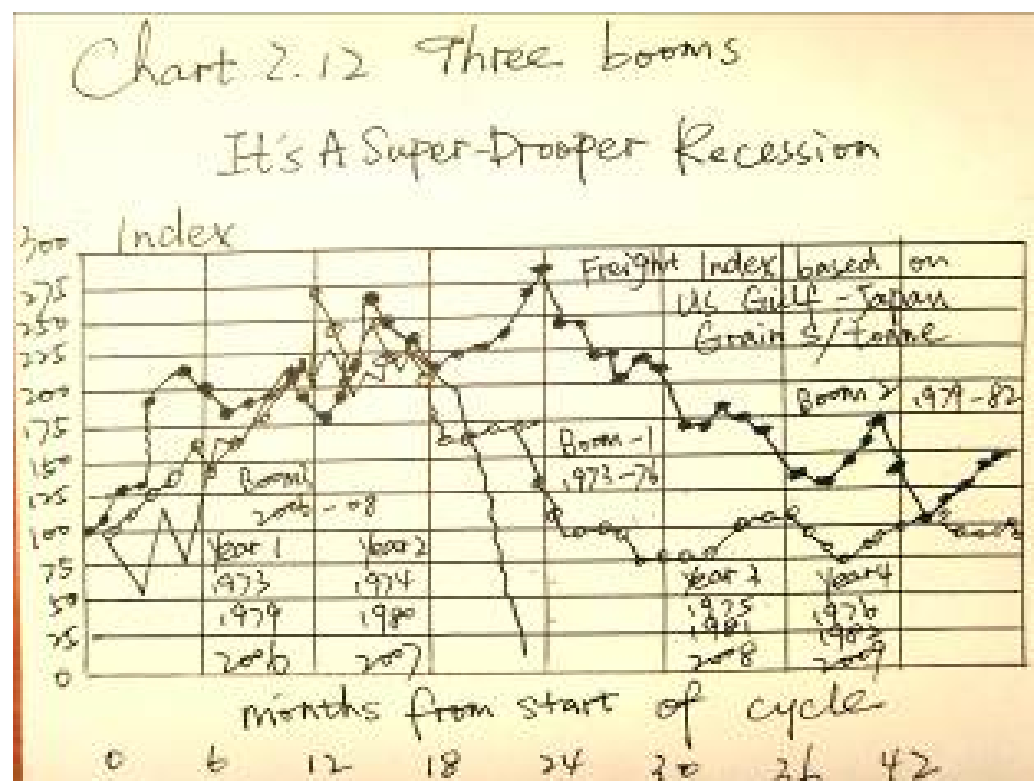 Chart 2.12 Three booms
It's A Super-Drooper Recession
Index
300
275
250
225
200
175
150
125
100
75
50
25
0
Freight Index based on
US Gulf-Japan
Grain $/tonne
Boom 2 1979-82
Boom-1
1973-76
Boom3
2006-08
Year 1 Year 2
1973 1974
1979 1980
2006 2007
Year 3 Year 4
1975 1976
1981 1982
2008 2009
months from start of cycle
0 6 12 18 24 30 36 42